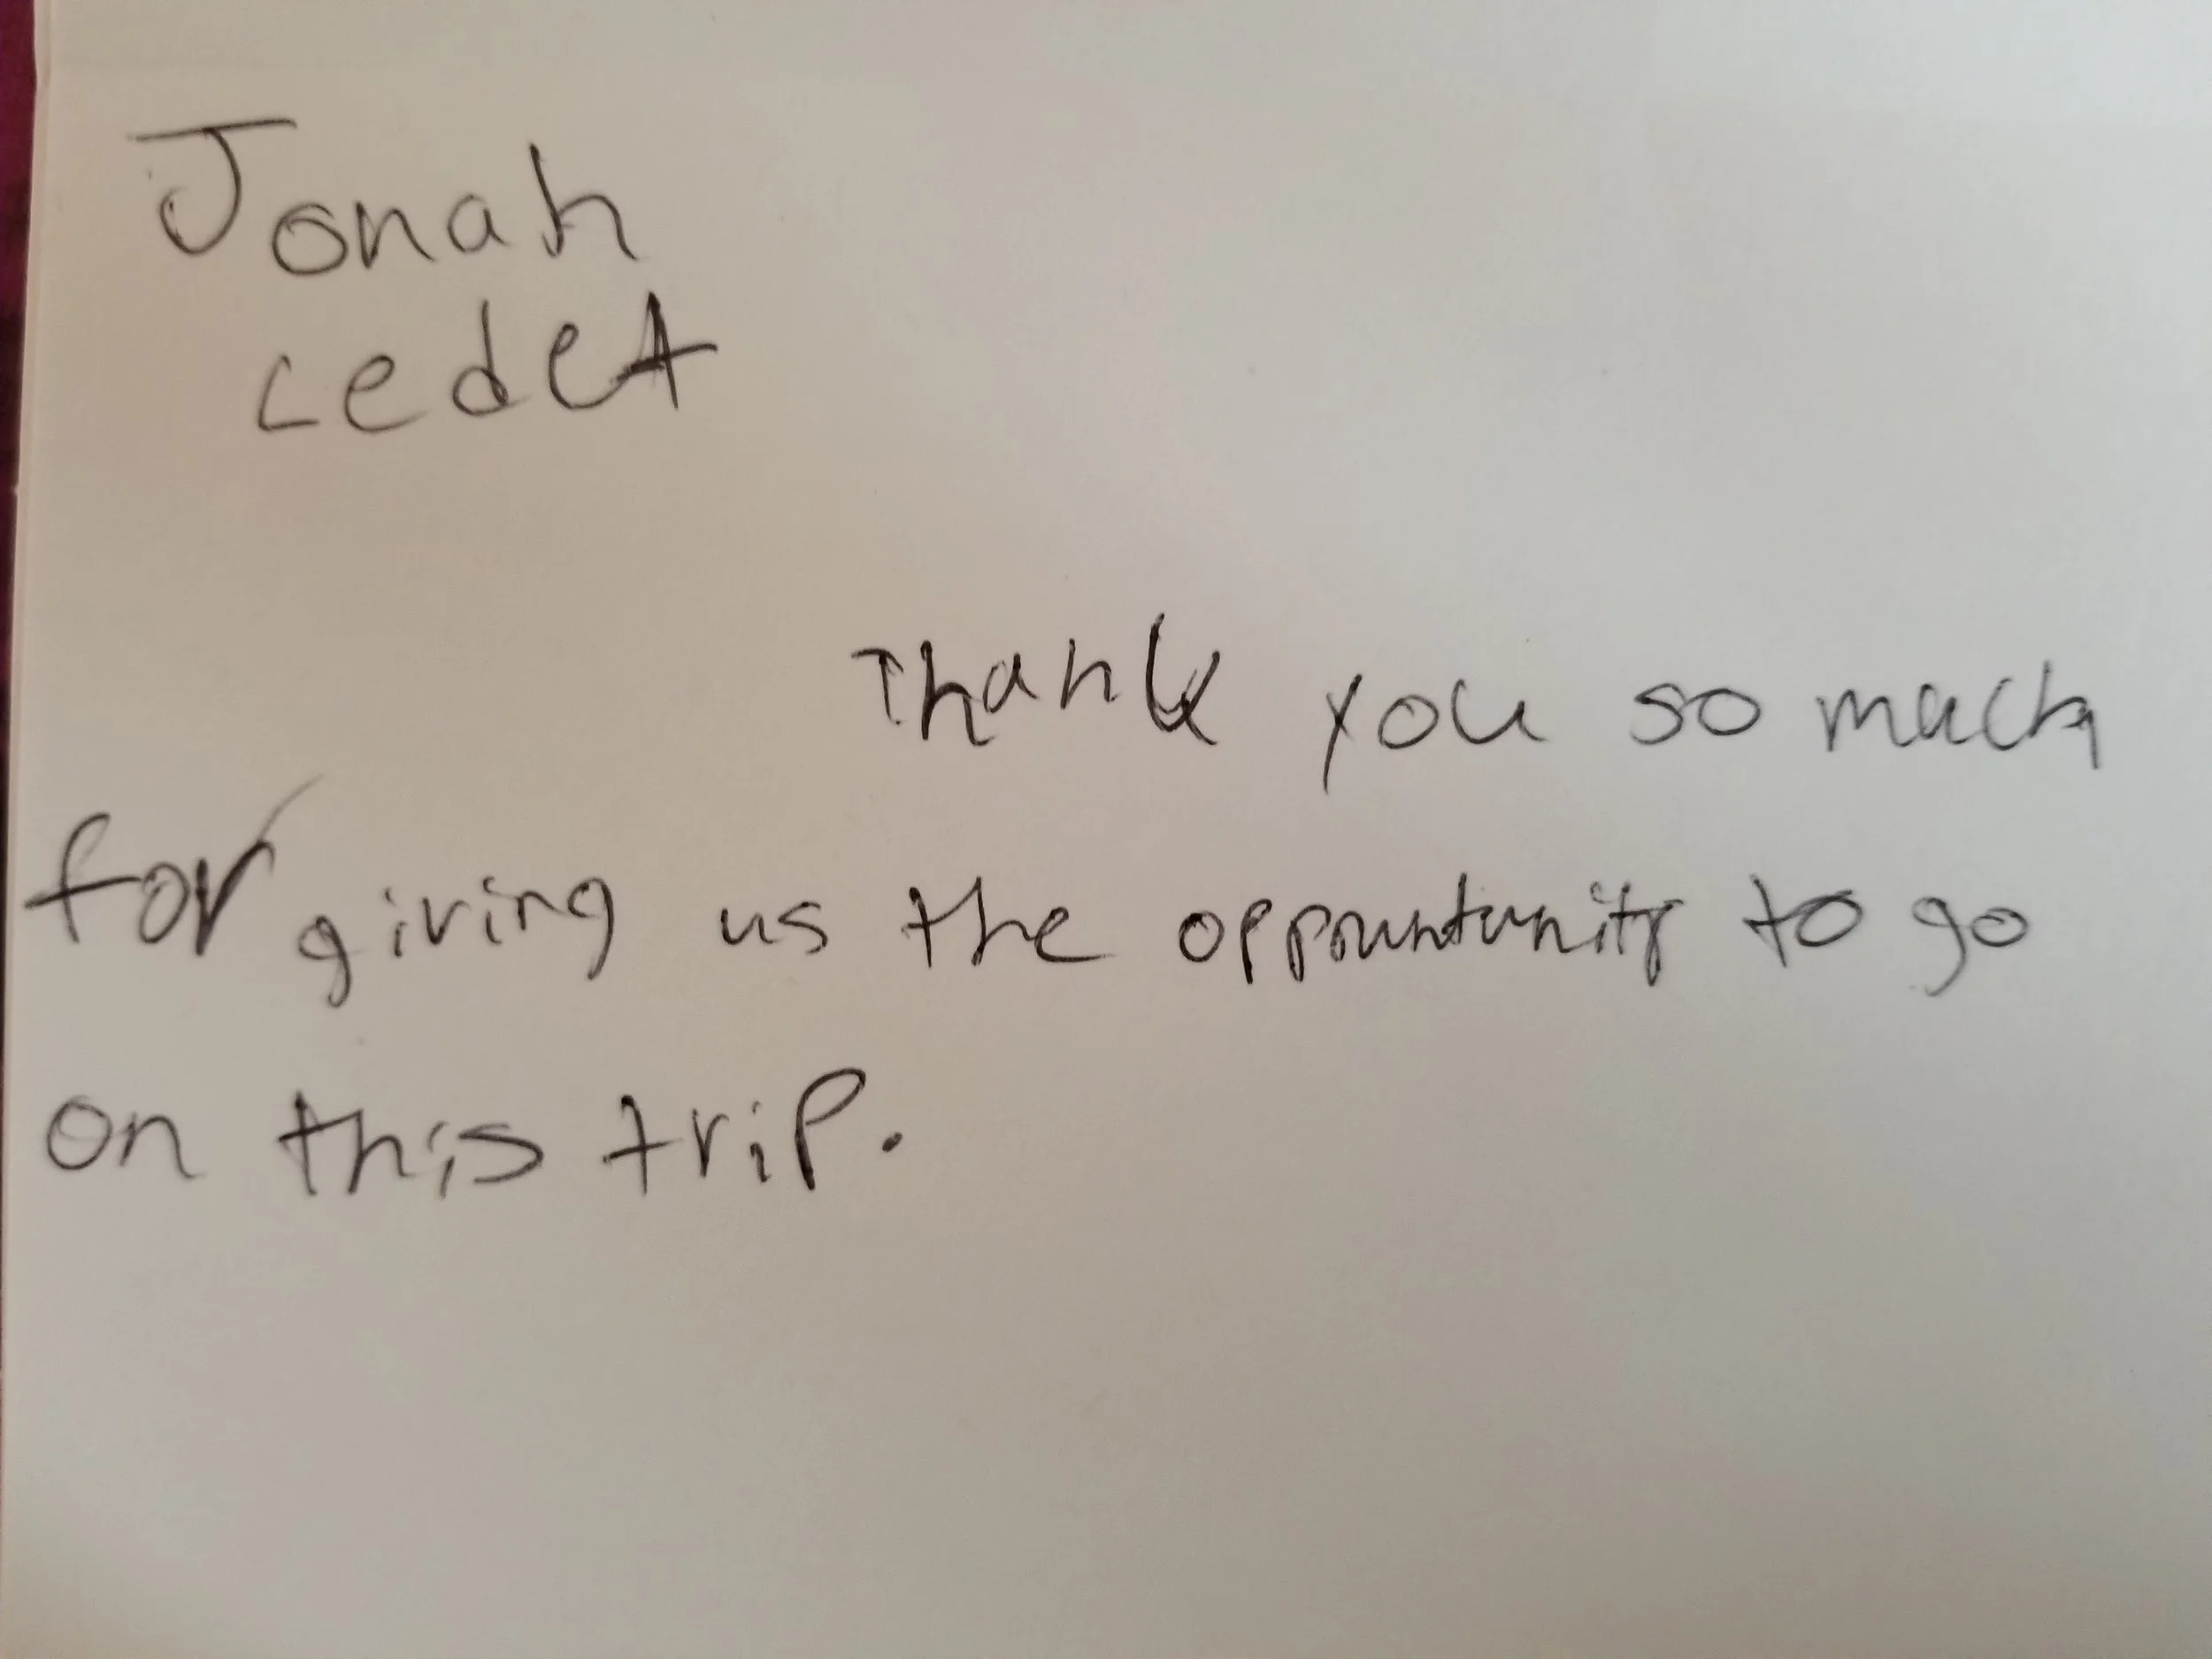 Jonah
Ledet
Thank you so much
for giving us the oppountunity to go
on this trip.